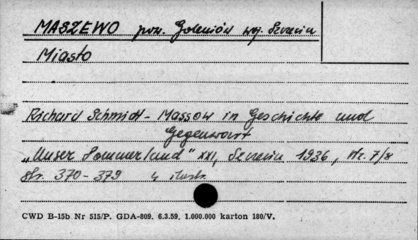 MASZEWO pow. Goleniów woj. Szczecin
Miasto
Richard Schmidt - Massow in Geschichte und
Gegenwart
„Unser Pommerland" XXI, Szczecin 1936, H. 7/8
str. 370-379 4 ilustr.
CWD B-15b Nr 515/P. GDA-809. 6.3.59. 1.000.000 karton 180/V.